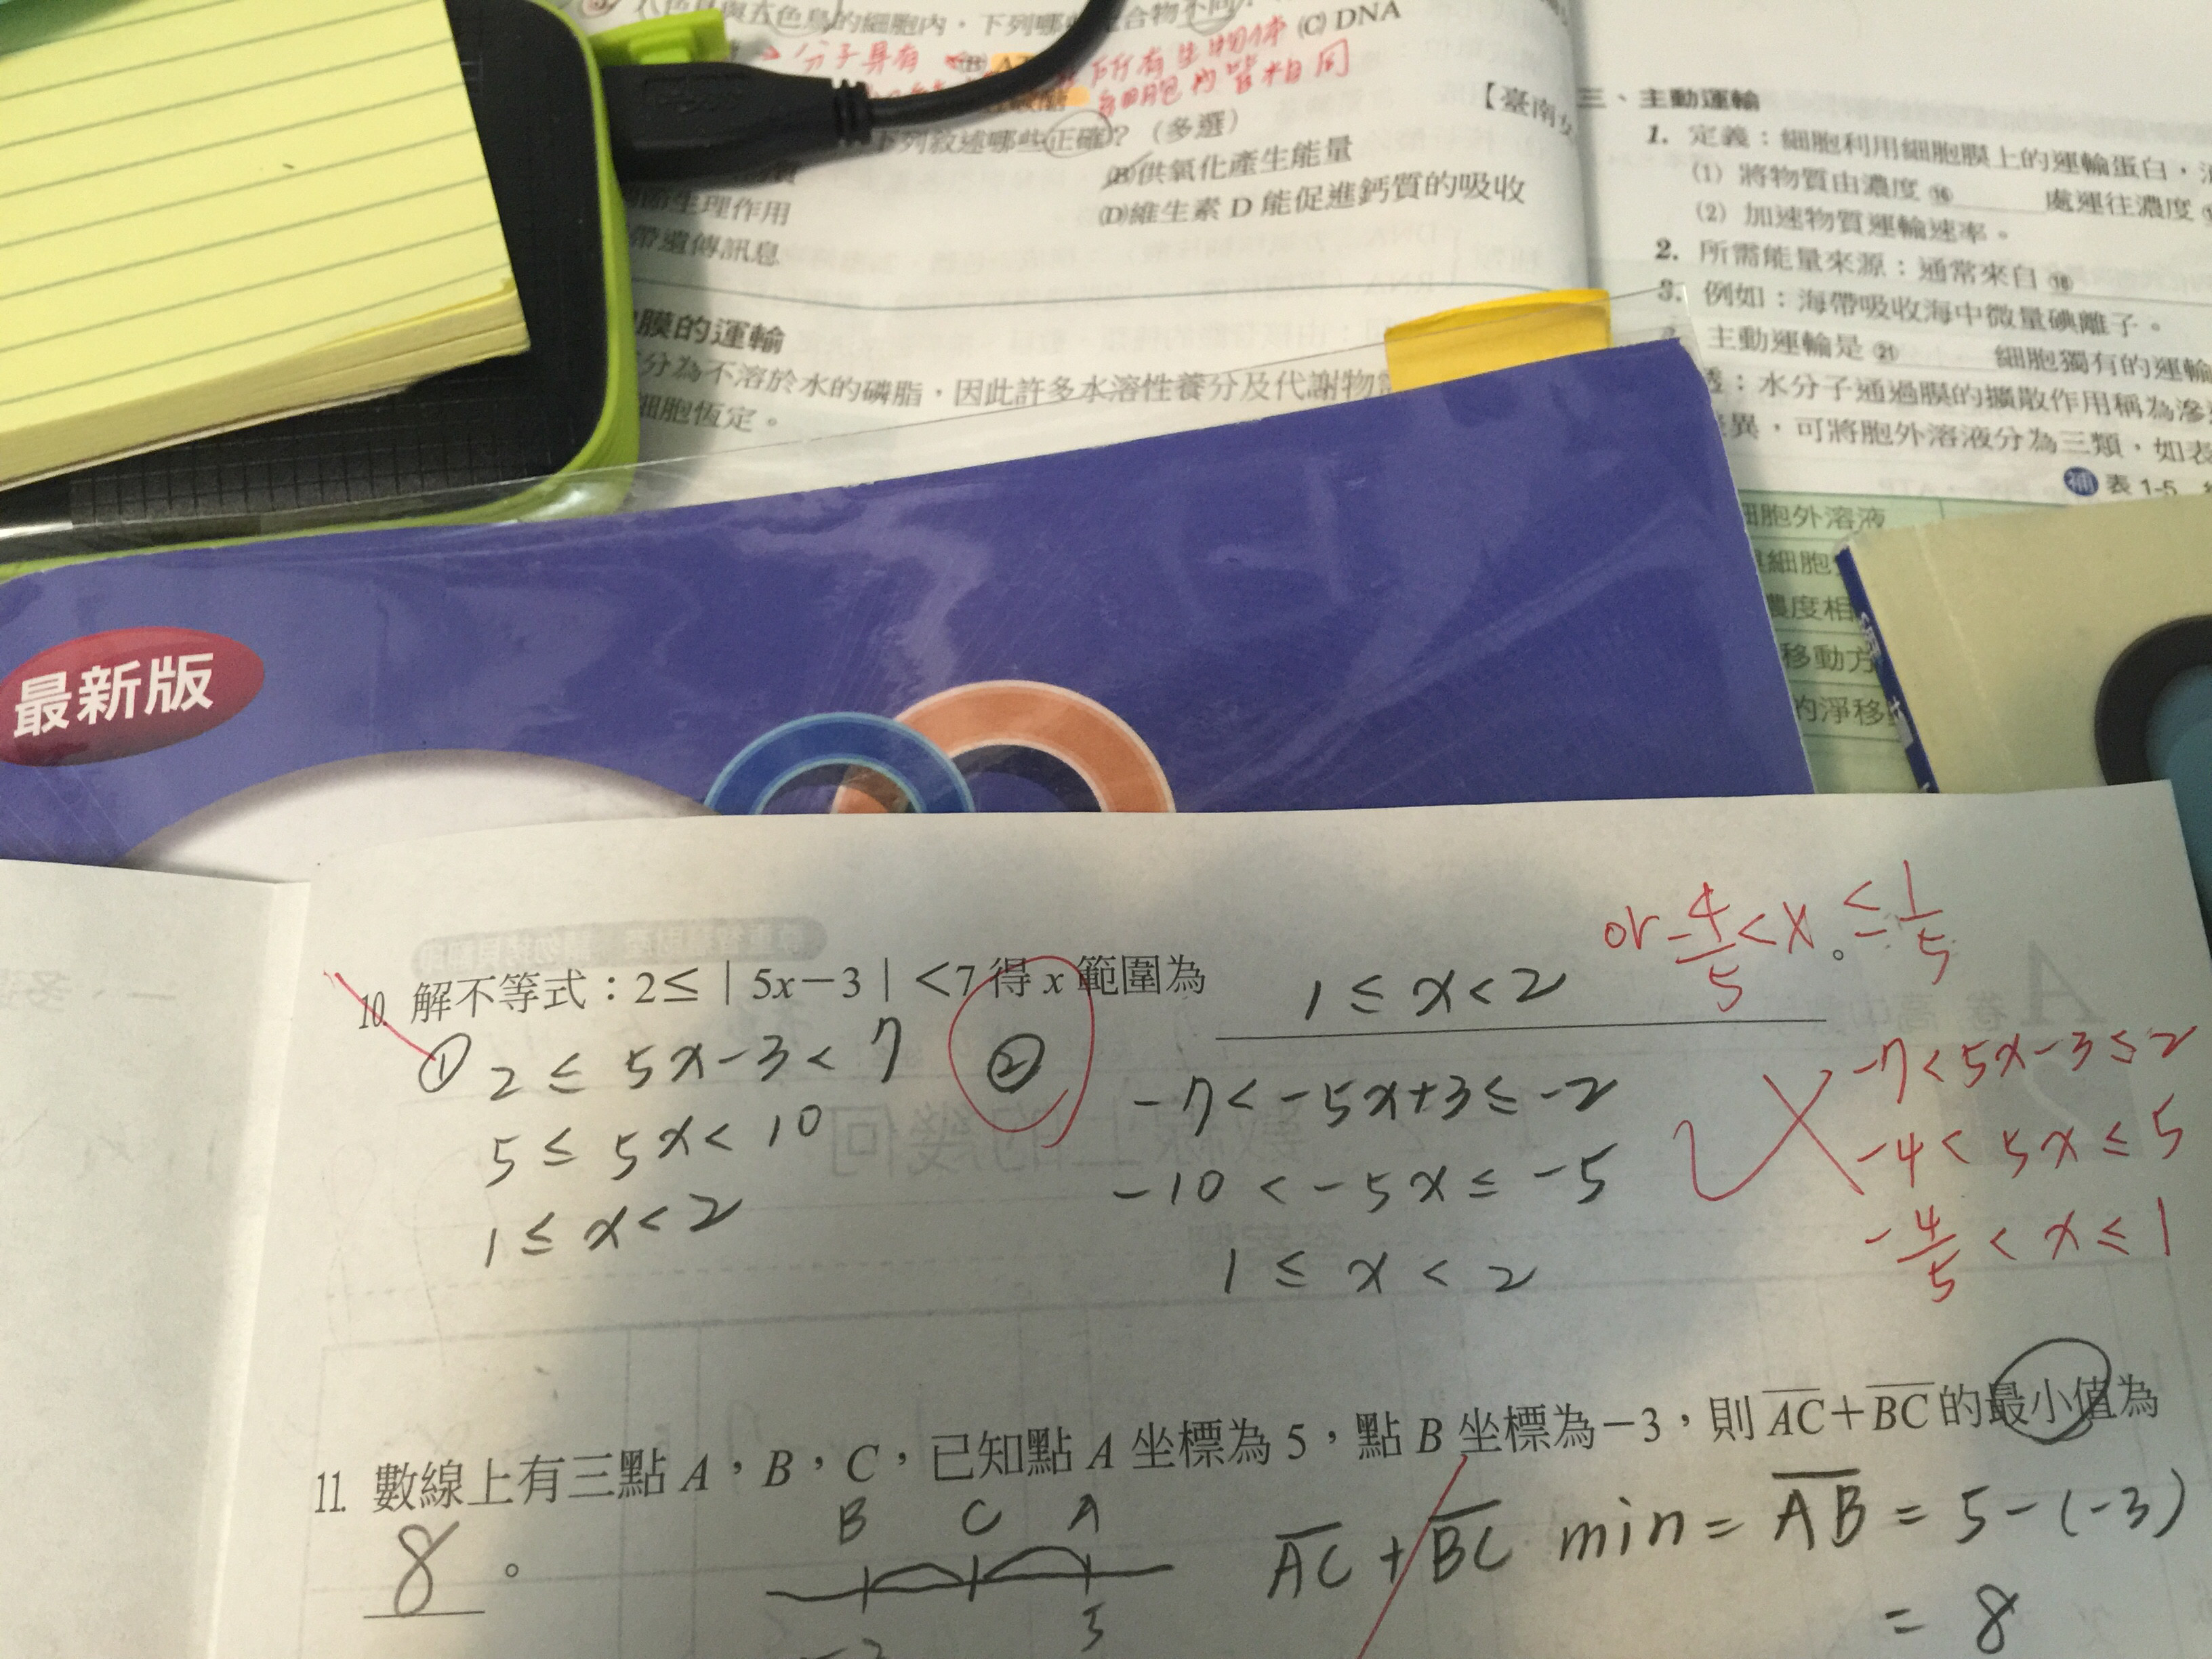 色鳥的細胞內，下列哪些
(C) DNA
分子具有
所有生物体
細胞內皆相同
下列敘述哪些正確？（多選）
(B)供氧化產生能量
生理作用
(D)維生素 D 能促進鈣質的吸收
帶遺傳訊息
膜的運輸
分為不溶於水的磷脂，因此許多水溶性養分及代謝物
細胞恆定。
【臺南
三、主動運輸
1. 定義：細胞利用細胞膜上的運輸蛋白，
(1) 將物質由濃度⑯ 處運往濃度
(2) 加速物質運輸速率。
2. 所需能量來源：通常來自⑱
3. 例如：海帶吸收海中微量碘離子。
主動運輸是㉑ 細胞獨有的運輸
：水分子通過膜的擴散作用稱為滲
異，可將胞外溶液分為三類，如表
補 表 1-5
細胞外溶液
細胞
濃度相
移動方
的淨移
最新版
or -4/5 < x ≤ 1/5
10. 解不等式：2≤｜5x－3｜<7 得 x 範圍為 1 ≤ x < 2 。
① 2 ≤ 5x-3 < 7 ② -7 < -5x+3 ≤ -2 -7 < 5x-3 ≤ 2
5 ≤ 5x < 10 -10 < -5x ≤ -5 -4 < 5x ≤ 5
1 ≤ x < 2 1 ≤ x < 2 -4/5 < x ≤ 1
11. 數線上有三點 A，B，C，已知點 A 坐標為 5，點 B 坐標為－3，則 AC＋BC 的最小值為
8 。
B C A
5
AC + BC min = AB = 5-(-3)
= 8